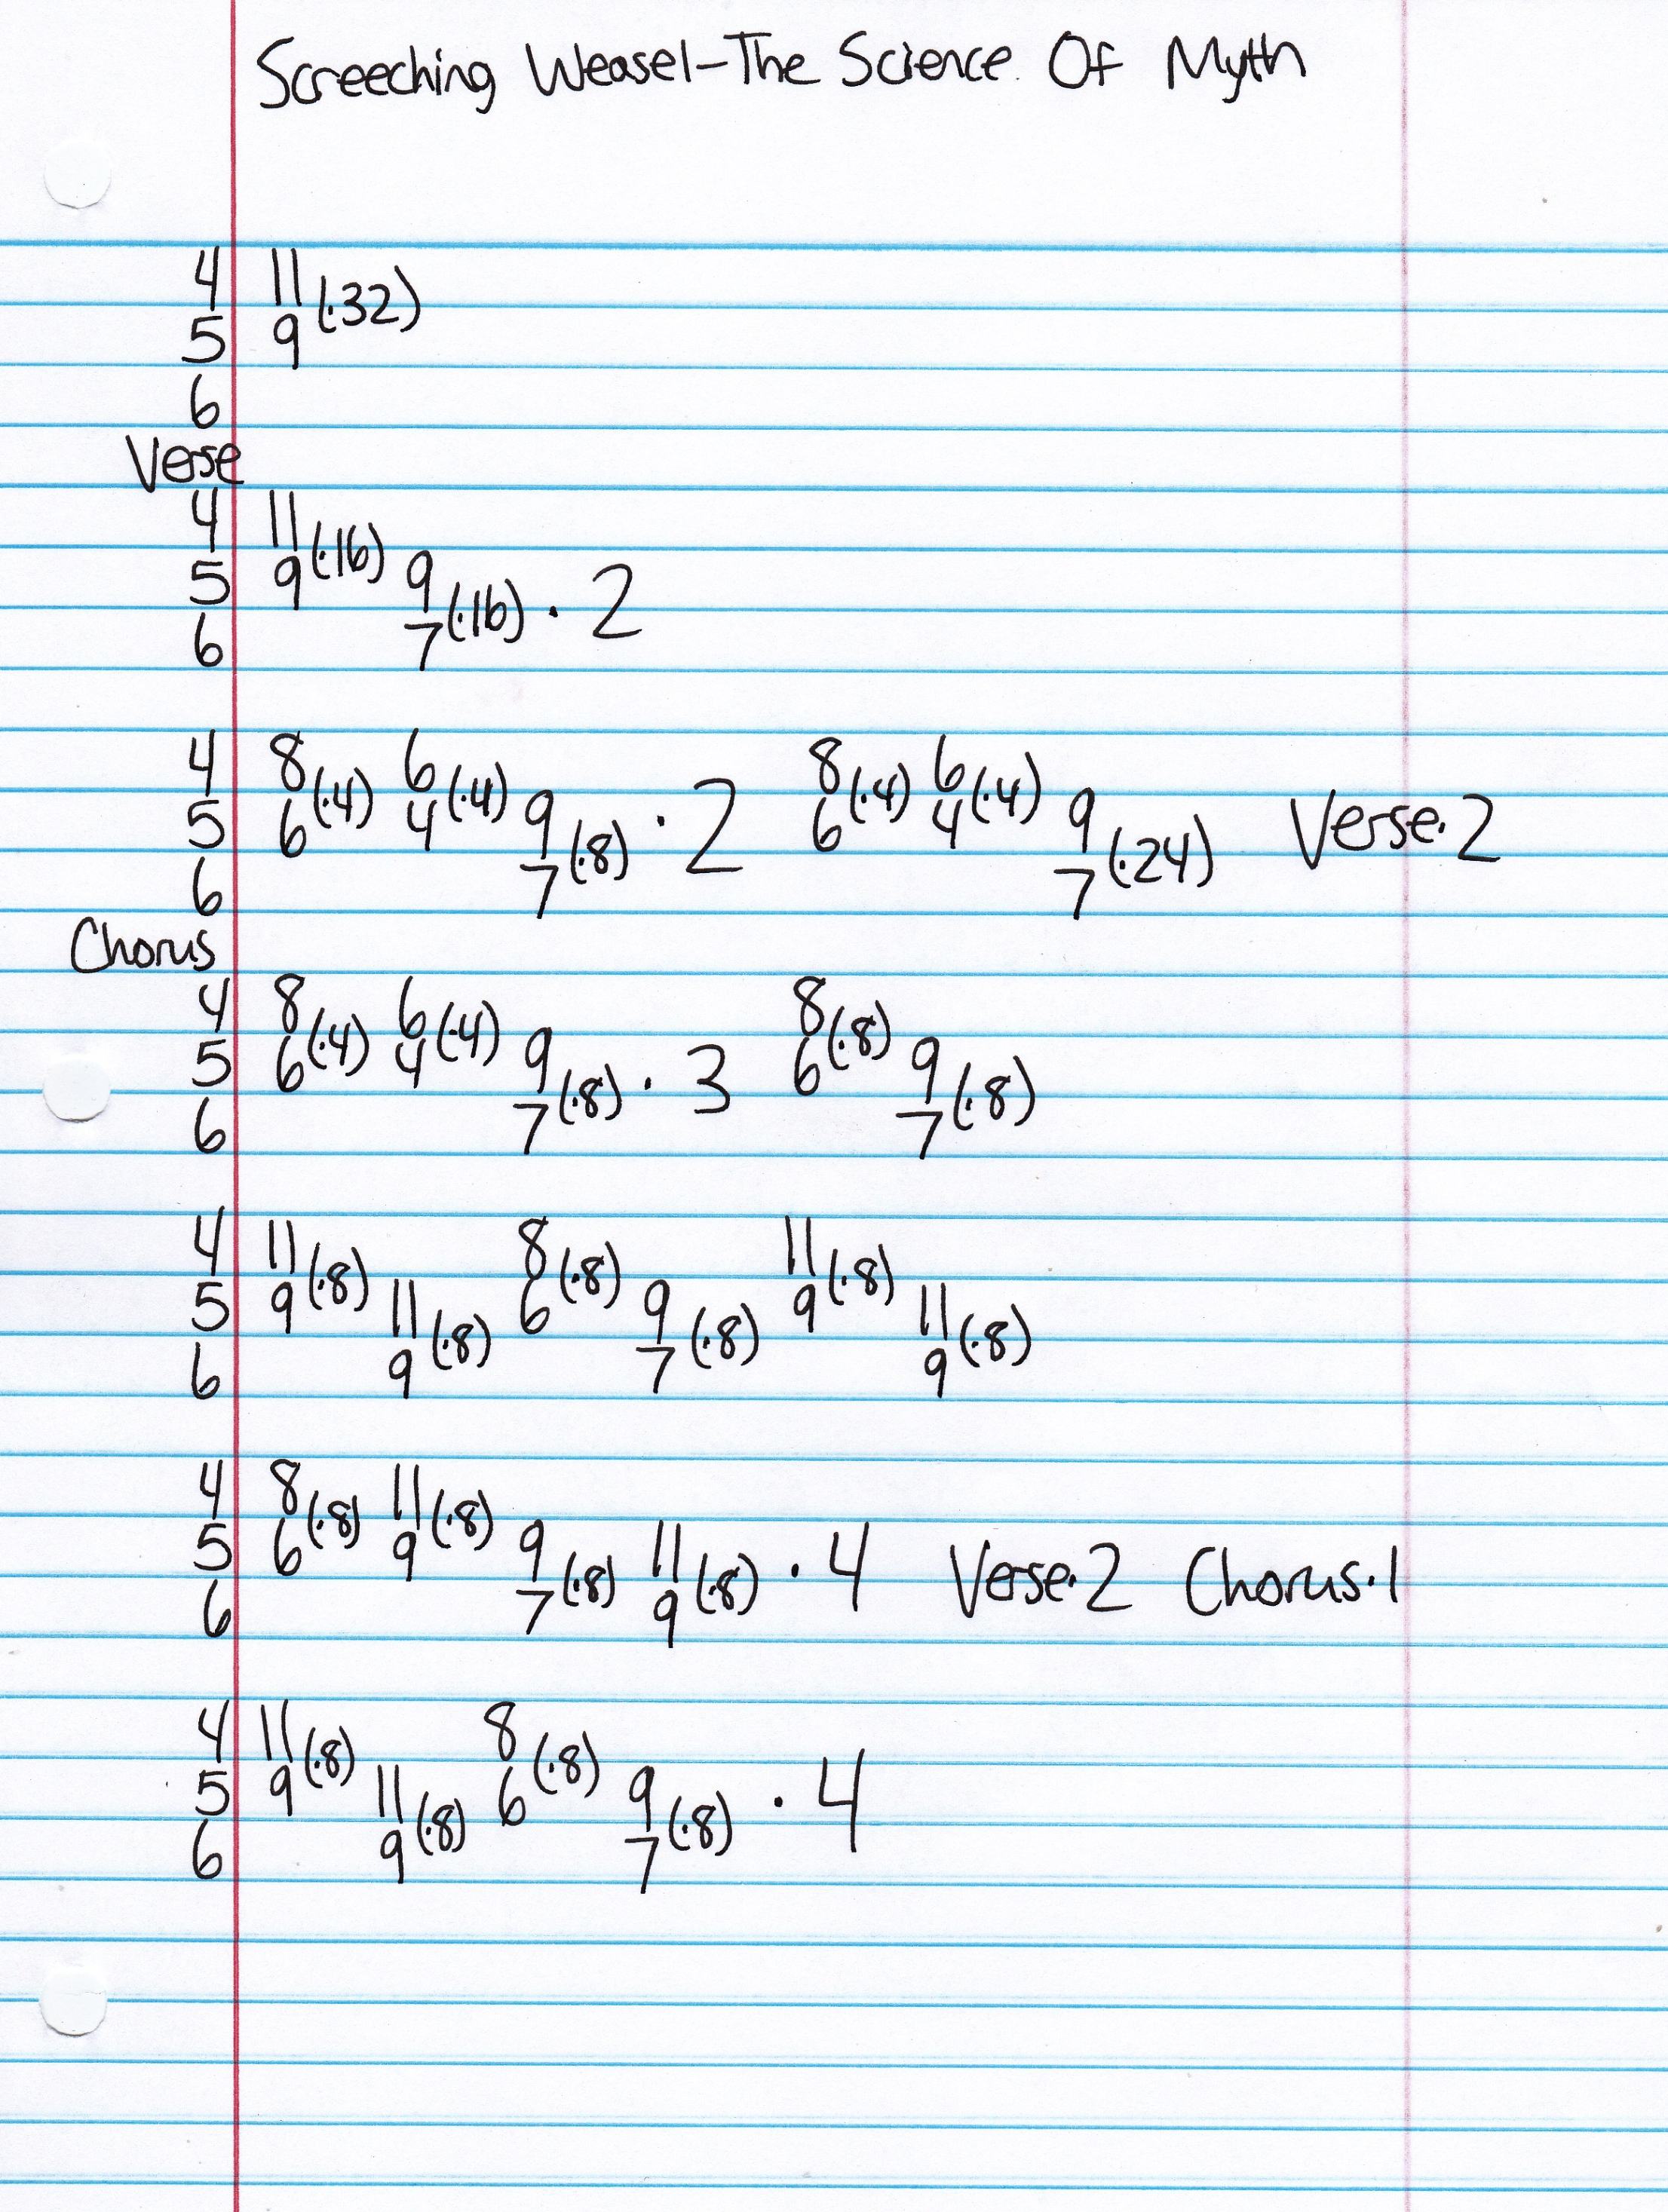 Screeching Weasel-The Science Of Myth
4 11
5 9 (·32)
6
Verse
4 11
5 9 (·16) 9
6 7 (·16) · 2
4 8 (·4) 6 (·4) 8 (·4) 6 (·4)
5 6 4 9 · 2 6 4 9 Verse·2
6 7 (·8) 7 (·24)
Chorus
4 8 (·4) 6 (·4) 8 (·8)
5 6 4 9 · 3 6 9
6 7 (·8) 7 (·8)
4 11 (·8) 8 (·8) 11 (·8)
5 9 11 6 9 9 11
6 9 (·8) 7 (·8) 9 (·8)
4 8 (·8) 11 (·8)
5 6 9 9 11 · 4 Verse·2 Chorus·1
6 7 (·8) 9 (·8)
4 11 (·8) 8 (·8)
5 9 11 6 9 · 4
6 9 (·8) 7 (·8)